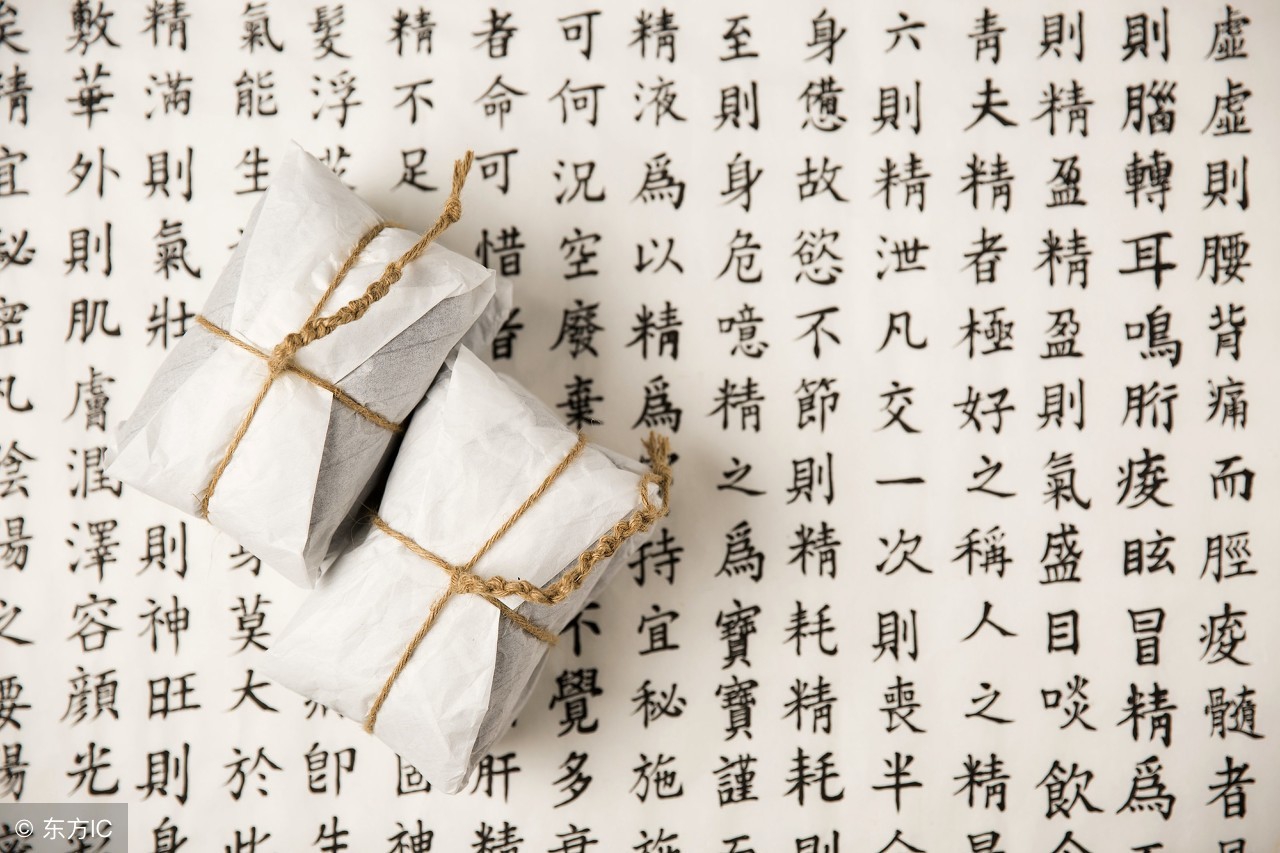 虛虛則腰背痛而脛痠髓者
則腦轉耳鳴胻痠眩冒精爲
則精盈精盈則氣盛目啖飲
青夫精者極好之稱人之精
六則精泄凡交一次則喪半
身憊故慾不節則精耗精耗則
至則身危噫精之爲寶寶謹
精液爲以精爲持宜秘施
可何況空廢棄不覺多
者命可惜者肝精
精不足固神
髮浮卽生
氣能生身莫大於此
精滿則氣壯則神旺則身
敷華外則肌膚潤澤容顏光
精宜秘密凡陰陽之腰陽
© 东方IC